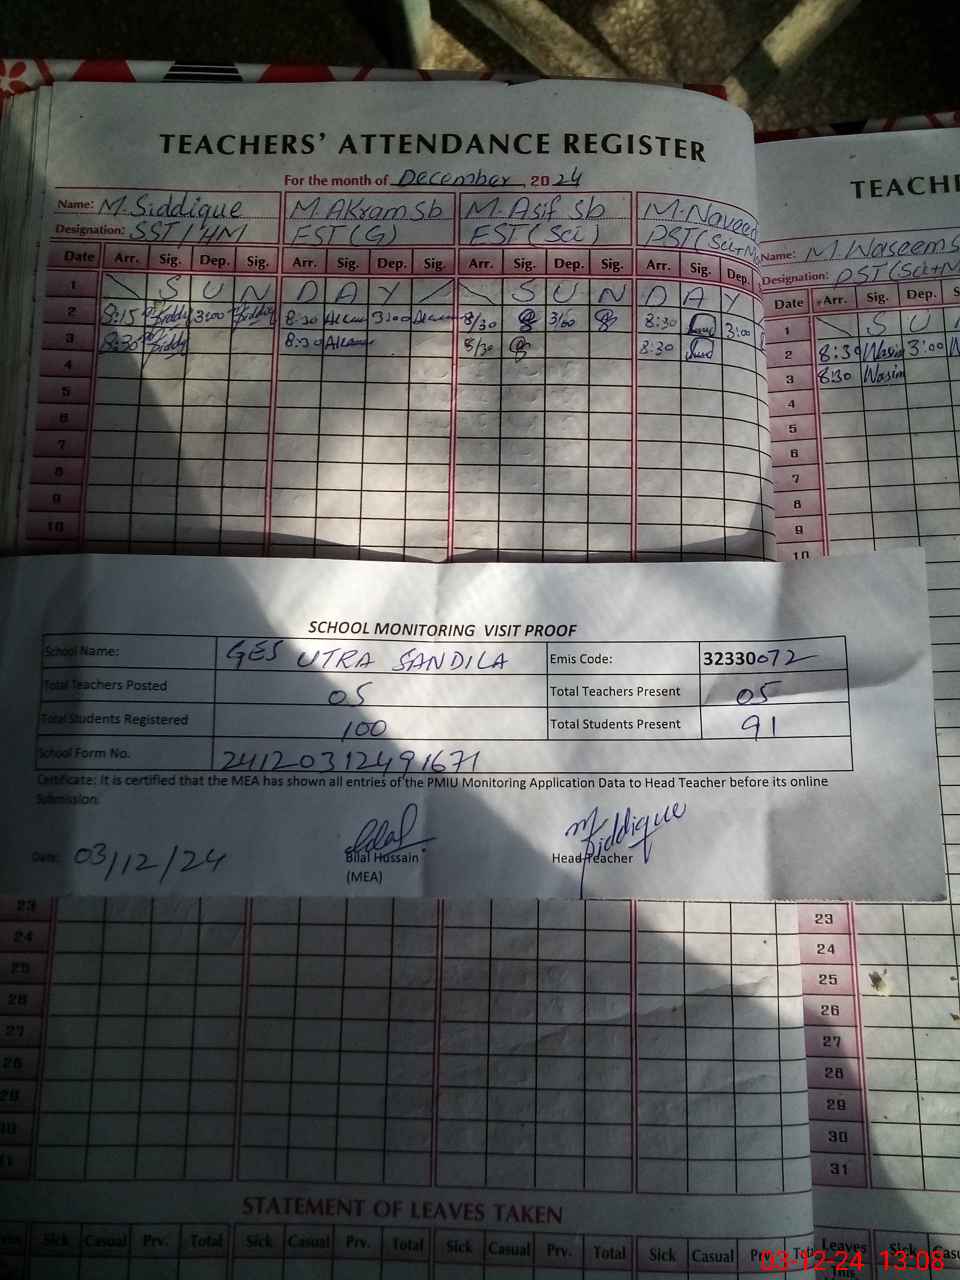 TEACHERS' ATTENDANCE REGISTER
For the month of December, 2024
Name: M. Siddique M. Akram Sb M. Asif Sb M. Naveed
Designation: SST/HM EST(G) EST(Sci) PST(Sci+M
Date Arr. Sig. Dep. Sig. Arr. Sig. Dep. Sig. Arr. Sig. Dep. Sig. Arr. Sig. Dep.
1 S U N D A Y S U N D A Y
2 8:15 3:00 8:30 Akram 3:00 Akram 8/30 3/00 8:30 3:00
3 8:30 8:30 Akram 8/30 8:30
4
5
6
7
8
9
10
TEACHE
Name: M. Waseem S
Designation: PST(Sci+M
Date Arr. Sig. Dep. S
1 S U
2 8:30 Wasim 3:00
3 8:30 Wasim
4
5
6
7
8
9
10
SCHOOL MONITORING VISIT PROOF
School Name: GES UTRA SANDILA Emis Code: 32330072
Total Teachers Posted 05 Total Teachers Present 05
Total Students Registered 100 Total Students Present 91
School Form No. 24120312491671
Certificate: It is certified that the MEA has shown all entries of the PMIU Monitoring Application Data to Head Teacher before its online
Submission.
M Siddique
Date: 03/12/24 Bilal Hussain Head Teacher
(MEA)
23
24
25
26
27
28
29
30
31
23
24
25
26
27
28
29
30
31
STATEMENT OF LEAVES TAKEN
Sick Casual Prv. Total Sick Casual Prv. Total Sick Casual Prv. Total Sick Casual Prv.
Leaves Sick Casu
This
03-12-24 13:08